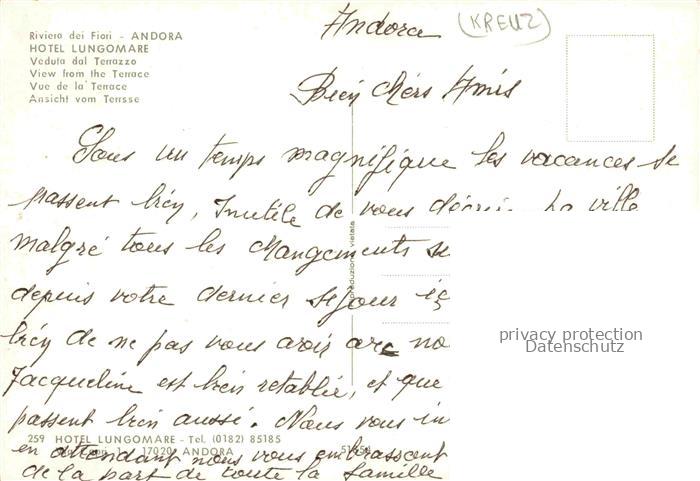 Andora (KREUZ)
Riviera dei Fiori - ANDORA
HOTEL LUNGOMARE
Veduta dal Terrazzo
View from the Terrace
Vue de la Terrace
Ansicht vom Terrsse
Bien chers Amis
Sous un temps magnifique les vacances se
passent bien, Inutile de vous décrire la ville
malgré tous les changements su
depuis votre dernier séjour ic
bien de ne pas vous avoir avec no
Jacqueline est bien rétablie, et que
passent bien aussi. Nous vous in
en attendant nous vous embrassent
de la part de toute la famille
259 HOTEL LUNGOMARE - Tel. (0182) 85185
17020 ANDORA
riproduzione vietata
privacy protection
Datenschutz